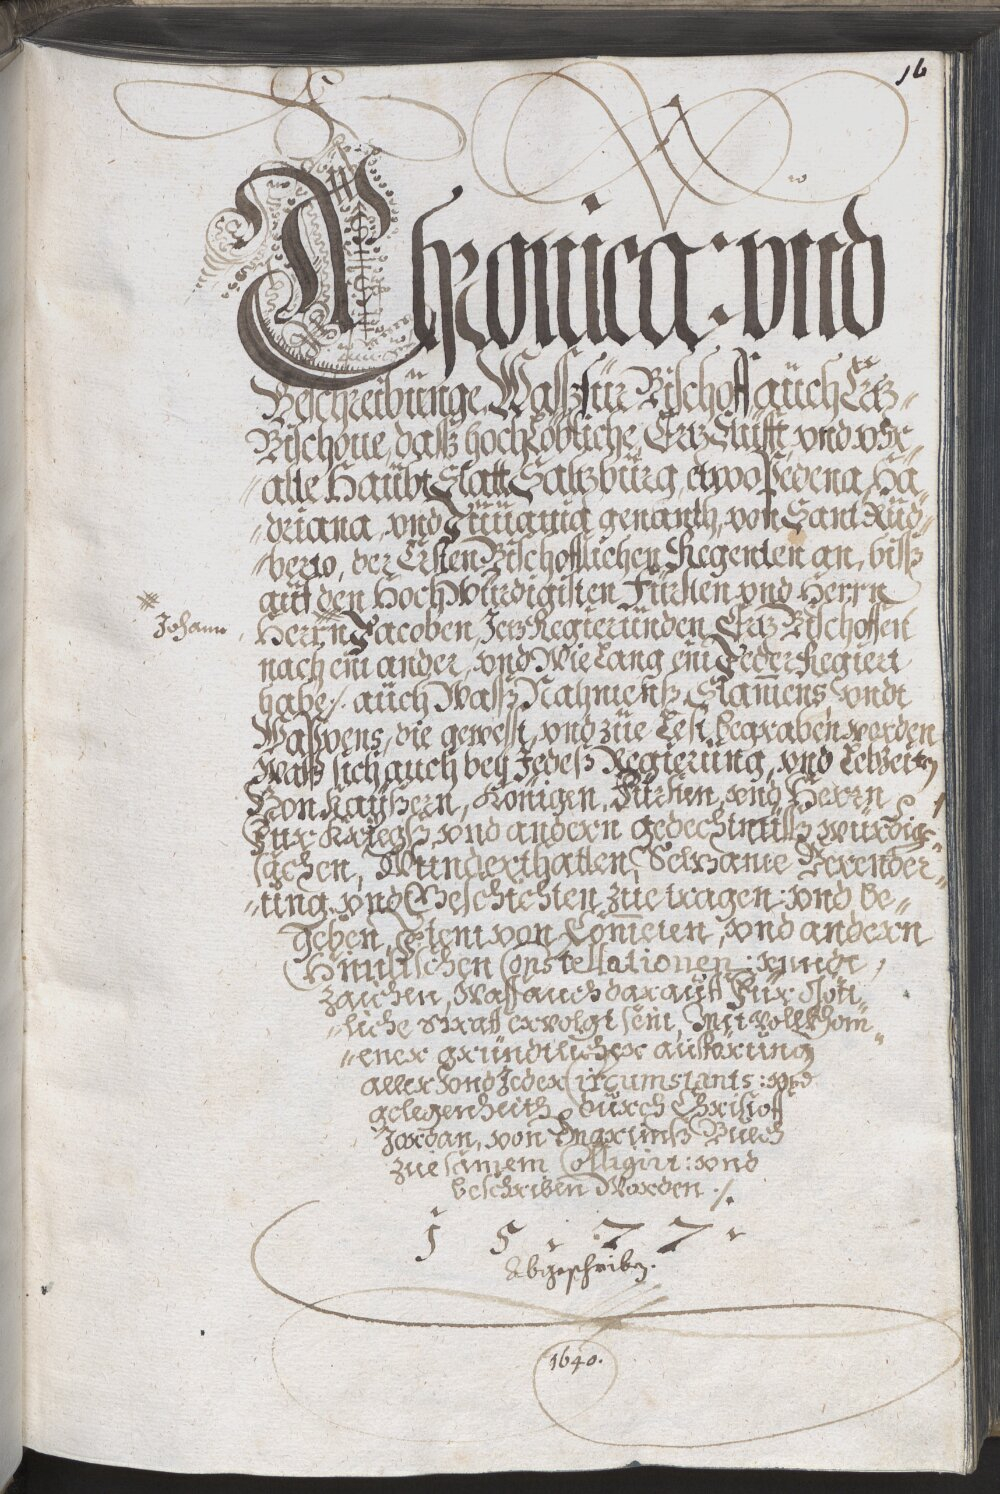 16
Chronica: vnd
Beschreibünge, Wasß für Bischoff aüch Ertz-
Bischoue, dasß hochLöbliche ErtzStüfft, vnd vhr
alte Haübt Statt Saltzbürg, etwo Pedena, Ha-
-driana, vnd Jüüauia genanth, von Sant Rüd-
-berto, der Ersten Bischofflichen Regenten an, bisß
aüf den Hochwürdigisten Fürsten vnd Herrn
Johann
Herrn Jacoben, Jetz Regieründen Ertz Bischoffen
nach ein ander, vnd Wie Lang ein Jeder Regiert
habe ./. aüch Wasß Nahmenß, Stam̄ens, vndt
Wappens, die gewest, vnd züe Lest begraben worden
Wasß sich auch beÿ Jedeß Regierüng, vnd Lebzeiten
Von Kaÿßern, Königen, Fürsten, vnd Herrn
Für Kriegß vnd andern gedechtnüß würdig
sachen, Wunderthatten, Seltzame Verender-
-üng vnd Geschichten züe tragen: vnd be-
geben, Item von Com̄eten, vnd andern
Himlischen Constellationen: vnndt
zaichen, Wasß auch darauff Für Göt-
-liche straff ervolgt sein, Mit vollkhom-
-ener gründtlicher aüsfürüng
aller vnd Jeder Circumstants: vnd
gelegenheith, dürch Christoff
Jordan, von
züesamem Colligirt: vnd
beschriben Worden ./.
1 5 7 7
Abgeschriben.
1640.